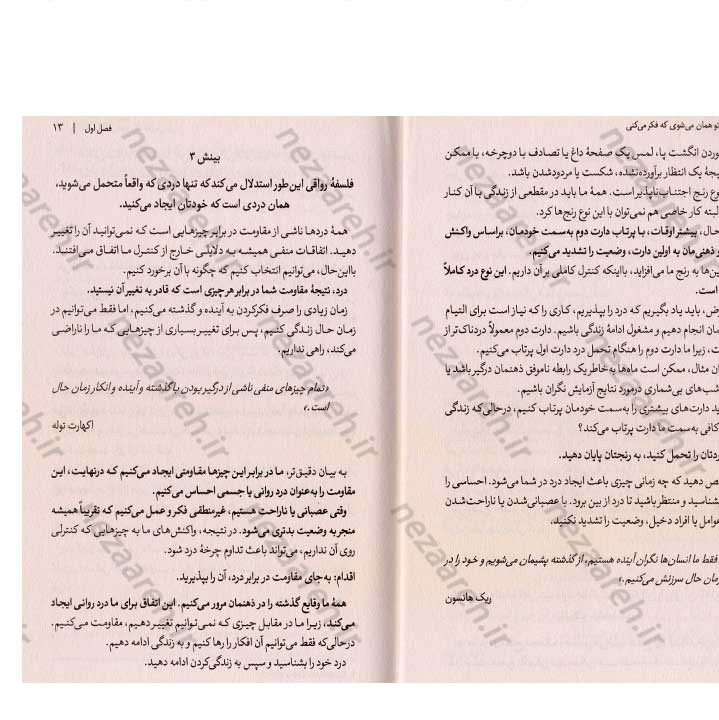 تو همان می‌شوی که فکر می‌کنی
خوردن انگشت پا، لمس یک صفحهٔ داغ یا تصادف با دوچرخه، یا ممکن
نتیجهٔ یک انتظار برآورده‌نشده، شکست یا مردودشدن باشد.
نوع رنج اجتناب‌ناپذیر است. همهٔ ما باید در مقطعی از زندگی با آن کنار
البته کار خاصی هم نمی‌توان با این نوع رنج‌ها کرد.
حال، بیشتر اوقات، با پرتاب دارت دوم به‌سمت خودمان، براساس واکنش
ذهنی‌مان به اولین دارت، وضعیت را تشدید می‌کنیم.
این‌ها به رنج ما می‌افزاید، بااینکه کنترل کاملی بر آن داریم. این نوع درد کاملاً
است.
باید یاد بگیریم که درد را بپذیریم، کاری را که نیاز است برای التیام
انجام دهیم و مشغول ادامهٔ زندگی باشیم. دارت دوم معمولاً دردناک‌تر از
زیرا ما دارت دوم را هنگام تحمل درد دارت اول پرتاب می‌کنیم.
مثال، ممکن است ماه‌ها به‌خاطر یک رابطه ناموفق ذهنمان درگیر باشد یا
شب‌های بی‌شماری درمورد نتایج آزمایش نگران باشیم.
دارت‌های بیشتری را به‌سمت خودمان پرتاب کنیم، درحالی‌که زندگی
کافی به‌سمت ما دارت پرتاب می‌کند؟
را تحمل کنید، به رنجتان پایان دهید.
دهید که چه زمانی چیزی باعث ایجاد درد در شما می‌شود. احساسی را
بشناسید و منتظر باشید تا درد از بین برود. با عصبانی‌شدن یا ناراحت‌شدن
عوامل یا افراد دخیل، وضعیت را تشدید نکنید.
فقط ما انسان‌ها نگران آینده هستیم، از گذشته پشیمان می‌شویم و خود را در
زمان حال سرزنش می‌کنیم.»
ریک هانسون
فصل اول | ۱۳
بینش ۳
فلسفهٔ رواقی این‌طور استدلال می‌کند که تنها دردی که واقعاً متحمل می‌شوید،
همان دردی است که خودتان ایجاد می‌کنید.
همهٔ دردها ناشی از مقاومت در برابر چیزهایی است که نمی‌توانید آن را تغییر
دهید. اتفاقات منفی همیشه به دلایلی خارج از کنترل ما اتفاق می‌افتند.
بااین‌حال، می‌توانیم انتخاب کنیم که چگونه با آن برخورد کنیم.
درد، نتیجهٔ مقاومت شما در برابر هر چیزی است که قادر به تغییر آن نیستید.
زمان زیادی را صرف فکرکردن به آینده و گذشته می‌کنیم، اما فقط می‌توانیم در
زمان حال زندگی کنیم، پس برای تغییر بسیاری از چیزهایی که ما را ناراضی
می‌کند، راهی نداریم.
«تمام چیزهای منفی ناشی از درگیر بودن با گذشته و آینده و انکار زمان حال
است.»
اکهارت توله
به بیان دقیق‌تر، ما در برابر این چیزها مقاومتی ایجاد می‌کنیم که درنهایت، این
مقاومت را به‌عنوان درد روانی یا جسمی احساس می‌کنیم.
وقتی عصبانی یا ناراحت هستیم، غیرمنطقی فکر و عمل می‌کنیم که تقریباً همیشه
منجر به وضعیت بدتری می‌شود. در نتیجه، واکنش‌های ما به چیزهایی که کنترلی
روی آن نداریم، می‌تواند باعث تداوم چرخهٔ درد شود.
اقدام: به‌جای مقاومت در برابر درد، آن را بپذیرید.
همهٔ ما وقایع گذشته را در ذهنمان مرور می‌کنیم. این اتفاق برای ما درد روانی ایجاد
می‌کند، زیرا ما در مقابل چیزی که نمی‌توانیم تغییر دهیم، مقاومت می‌کنیم.
درحالی‌که فقط می‌توانیم آن افکار را رها کنیم و به زندگی ادامه دهیم.
درد خود را بشناسید و سپس به زندگی‌کردن ادامه دهید.
nezaareh.ir